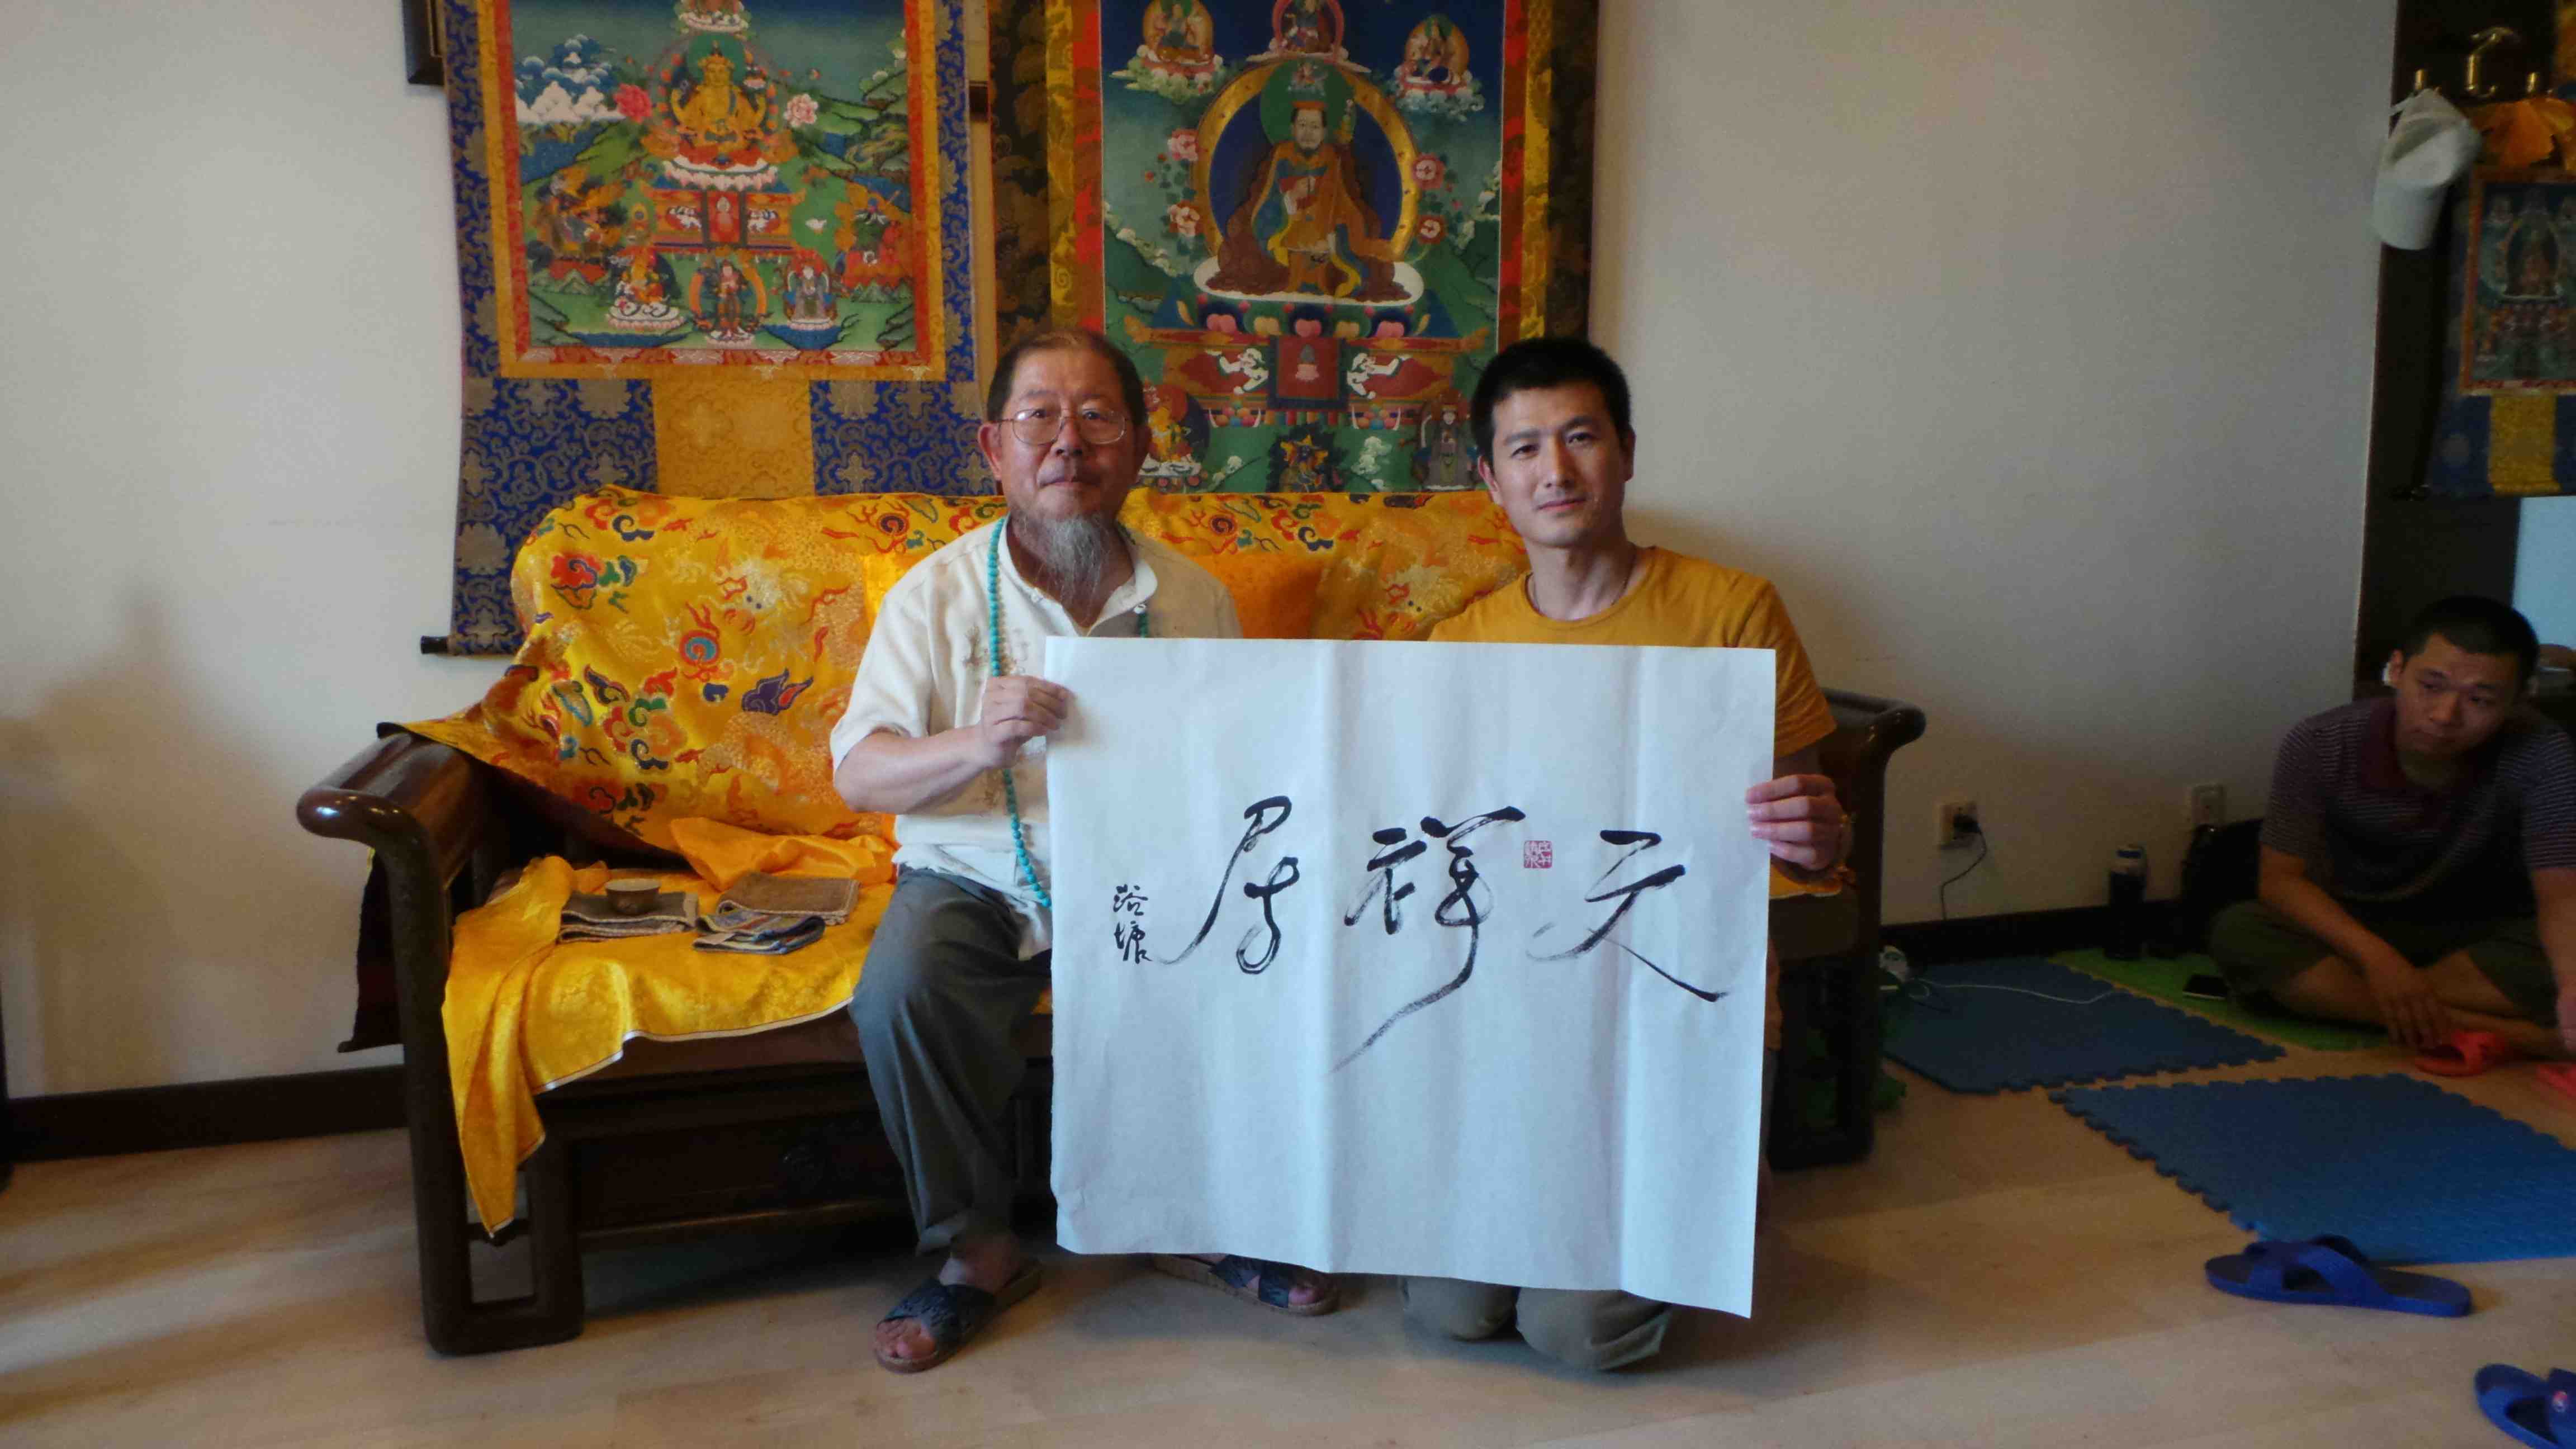 天祥居
浴塘